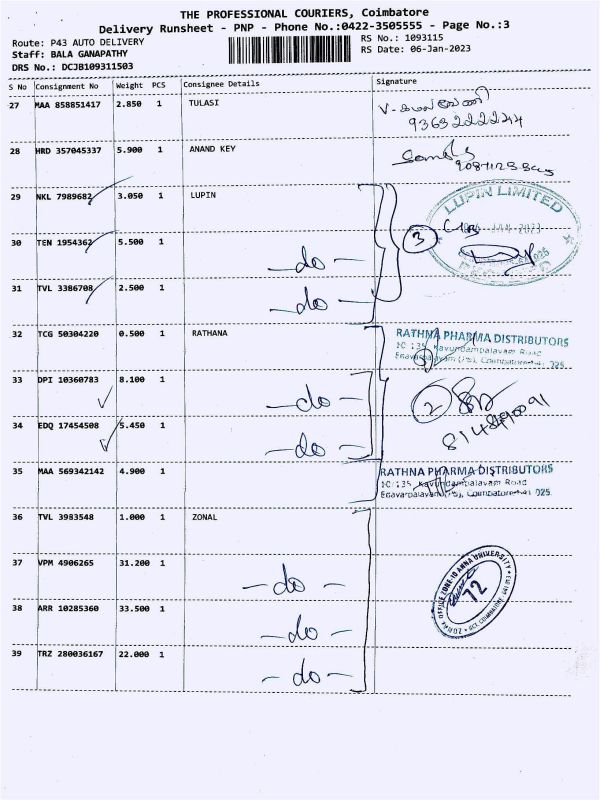 THE PROFESSIONAL COURIERS, Coimbatore
Delivery Runsheet - PNP - Phone No.:0422-3505555 - Page No.:3
Route: P43 AUTO DELIVERY
Staff: BALA GANAPATHY
DRS No.: DCJB109311503
RS No.: 1093115
RS Date: 06-Jan-2023
S No Consignment No Weight PCS Consignee Details Signature
27 MAA 858851417 2.850 1 TULASI
28 HRD 357045337 5.900 1 ANAND KEY
29 NKL 7989682 3.050 1 LUPIN
LUPIN LIMITED
30 TEN 1954362 5.500 1 -do- 3
31 TVL 3386708 2.500 1 -do-
32 TCG 50304220 0.500 1 RATHANA
RATHNA PHARMA DISTRIBUTORS
Kavundampalayam Road
33 DPI 10360783 8.100 1 -do- 2
34 EDQ 17454508 5.450 1 -do-
35 MAA 569342142 4.900 1
RATHNA PHARMA DISTRIBUTORS
36 TVL 3983548 1.000 1 ZONAL
37 VPM 4906265 31.200 1 -do-
ZONAL OFFICE ZONE-10 ANNA UNIVERSITY
72
38 ARR 10285360 33.500 1 -do-
39 TRZ 280036167 22.000 1 -do-